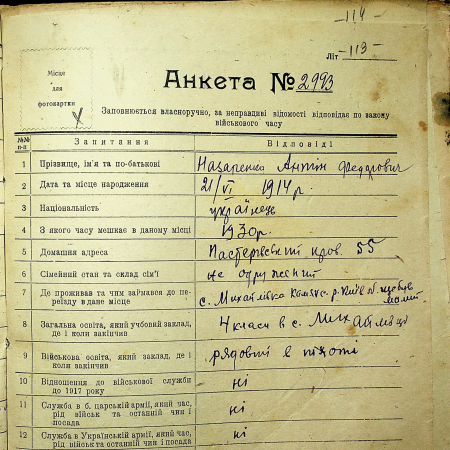 -114-
Літ -113-
Місце
для
фотокартки
Анкета № 2993
Заповнюється власноручно, за неправдиві відомості відповідає по закону
військового часу
№№ п-п Запитання Відповіді
1 Прізвище, ім'я та по-батькові Назаренко Антін Федорович
2 Дата та місце народження 21/VI 1914 р.
3 Національність українець
4 З якого часу мешкає в даному місці 1930р.
5 Домашня адреса Пастерівський пров. 55
6 Сімейний стан та склад сім'ї не одружений
7 Де проживав та чим займався до пе-
реїзду в дане місце с. Михайлівка р. Київ
8 Загальна освіта, який учбовий заклад,
де і коли закінчив 4 класи в с. Михайлівці
9 Військова освіта, який заклад, де і
коли закінчив рядовий в піхоті
10 Відношення до військової служби
до 1917 року ні
11 Служба в б. царській армії, який час,
рід військ та останній чин і
посада ні
12 Служба в Українській армії, який час,
рід військ та останній чин і посада ні